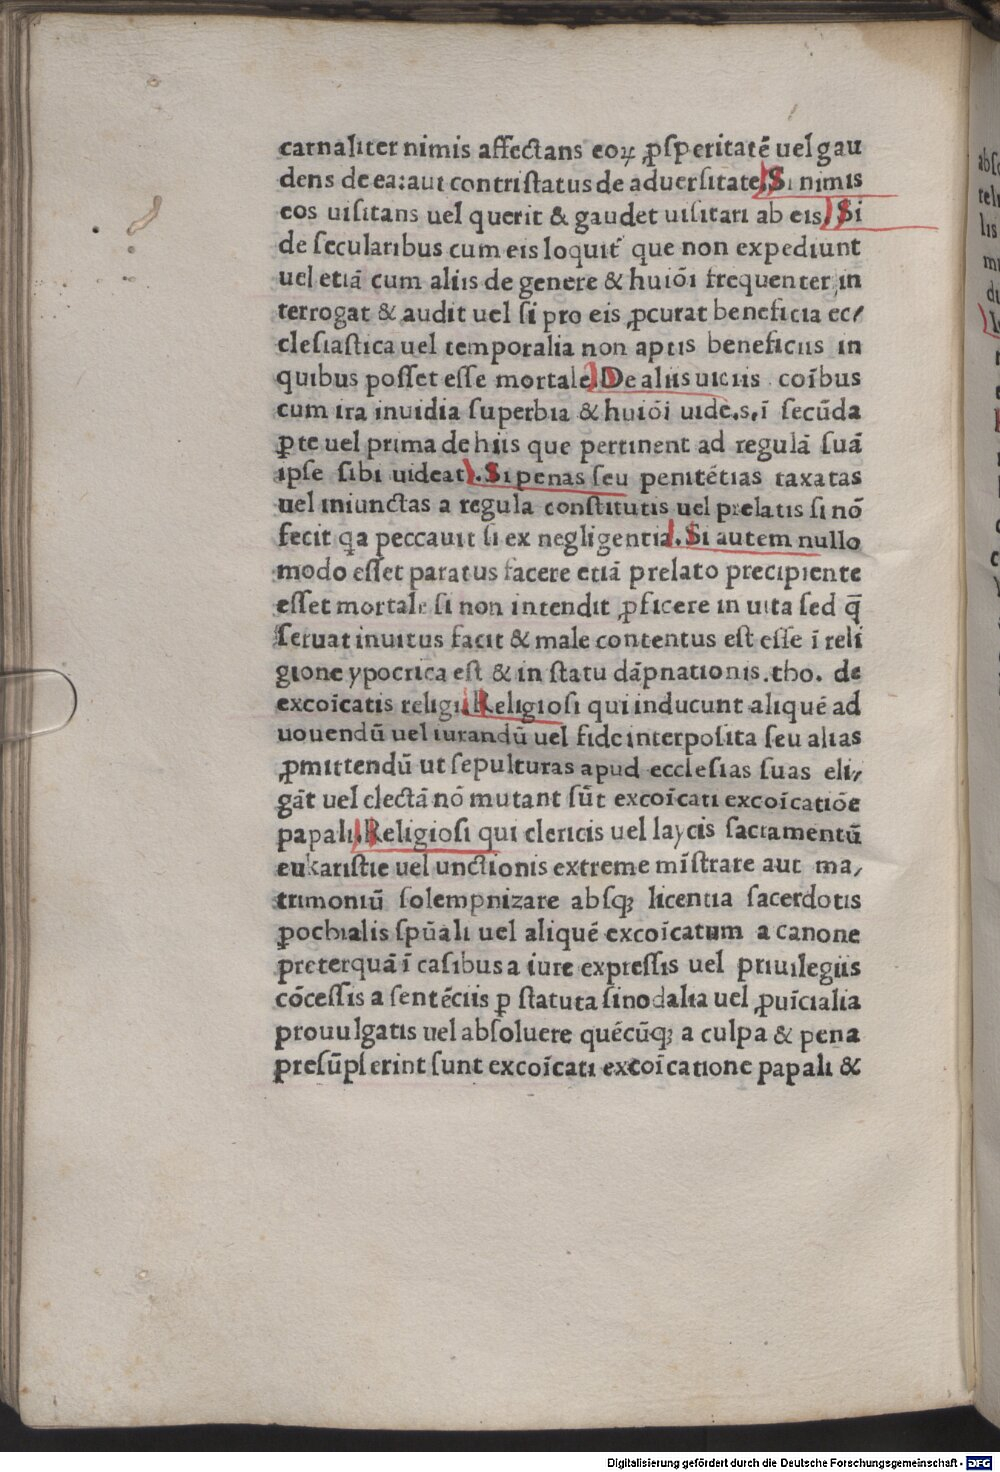 carnaliter nimis affectans eoꝝ ꝓſperitatē uel gau
dens de ea: aut contriſtatus de aduerſitate. Si nimis
eos uiſitans uel querit & gaudet uiſitari ab eis. Si
de ſecularibus cum eis loquit᷑ que non expediunt
uel etiā cum aliis de genere & huiōi frequenter in
terrogat & audit uel ſi pro eis ꝓcurat beneficia ec⸗
cleſiaſtica uel temporalia non aptis beneficiis in
quibus poſſet eſſe mortale. De aliis uiciis coībus
cum ira inuidia ſuperbia & huiōi uide .s. ī ſecūda
ꝑte uel prima de hiis que pertinent ad regulā ſuā
ipſe ſibi uideat. Si penas ſeu penitētias taxatas
uel iniunctas a regula conſtitutis uel prelatis ſi nō
fecit qa peccauit ſi ex negligentia. Si autem nullo
modo eſſet paratus facere etiā prelato precipiente
eſſet mortale ſi non intendit ꝓficere in uita ſed q̄
ſeruat inuitus facit & male contentus eſt eſſe ī reli
gione ypocrica eſt & in ſtatu dāpnationis. tho. de
excoīcatis religi. Religioſi qui inducunt aliquē ad
uouendū uel iurandū uel fide interpoſita ſeu alias
ꝓmittendū ut ſepulturas apud eccleſias ſuas eli⸗
gāt uel electā nō mutant ſūt excoīcati excoīcatiōe
papali. Religioſi qui clericis uel laycis ſacramentū
eukariſtie uel unctionis extreme mīſtrare aut ma⸗
trimoniū ſolempnizare abſqꝫ licentia ſacerdotis
ꝑochialis ſpūali uel aliquē excoīcatum a canone
preterquā ī caſibus a iure expreſſis uel priuilegiis
cōceſſis a ſentēciis ꝑ ſtatuta ſinodalia uel ꝓuīcialia
prouulgatis uel abſoluere quēcūqꝫ a culpa & pena
preſūpſerint ſunt excoīcati excoīcatione papali &
Digitalisierung gefördert durch die Deutsche Forschungsgemeinschaft - DFG